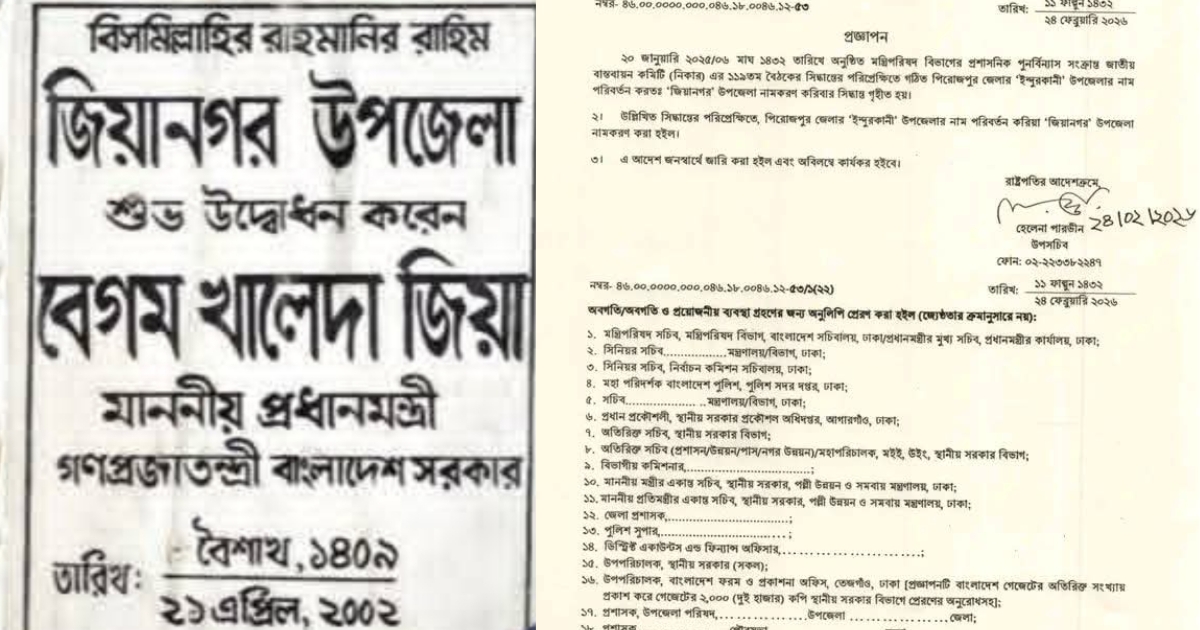 বিসমিল্লাহির রাহমানির রাহিম
জিয়ানগর উপজেলা
শুভ উদ্বোধন করেন
বেগম খালেদা জিয়া
মাননীয় প্রধানমন্ত্রী
গণপ্রজাতন্ত্রী বাংলাদেশ সরকার
তারিখ:
বৈশাখ, ১৪০৯
২১ এপ্রিল, ২০০২
নম্বর- ৪৬.০০.০০০০.০০০.০৪৬.১৮.০০৪৬.১২-৫৩
তারিখ:
১১ ফাল্গুন ১৪৩২
২৪ ফেব্রুয়ারি ২০২৬
প্রজ্ঞাপন
২০ জানুয়ারি ২০২৫/০৬ মাঘ ১৪৩২ তারিখে অনুষ্ঠিত মন্ত্রিপরিষদ বিভাগের প্রশাসনিক পুনর্বিন্যাস সংক্রান্ত জাতীয়
বাস্তবায়ন কমিটি (নিকার) এর ১১৯তম বৈঠকের সিদ্ধান্তের পরিপ্রেক্ষিতে গঠিত পিরোজপুর জেলার 'ইন্দুরকানী' উপজেলার নাম
পরিবর্তন করতঃ 'জিয়ানগর' উপজেলা নামকরণ করিবার সিদ্ধান্ত গৃহীত হয়।
২। উল্লিখিত সিদ্ধান্তের পরিপ্রেক্ষিতে, পিরোজপুর জেলার 'ইন্দুরকানী' উপজেলার নাম পরিবর্তন করিয়া 'জিয়ানগর' উপজেলা
নামকরণ করা হইল।
৩। এ আদেশ জনস্বার্থে জারি করা হইল এবং অবিলম্বে কার্যকর হইবে।
রাষ্ট্রপতির আদেশক্রমে,
২৪/০২/২০২৬
হেলেনা পারভীন
উপসচিব
ফোন: ০২-২২৩৩৮২২৪৭
নম্বর- ৪৬.০০.০০০০.০০০.০৪৬.১৮.০০৪৬.১২-৫৩/১(২২)
তারিখ:
১১ ফাল্গুন ১৪৩২
২৪ ফেব্রুয়ারি ২০২৬
অবগতি/অবগতি ও প্রয়োজনীয় ব্যবস্থা গ্রহণের জন্য অনুলিপি প্রেরণ করা হইল (জ্যেষ্ঠতার ক্রমানুসারে নয়):
১. মন্ত্রিপরিষদ সচিব, মন্ত্রিপরিষদ বিভাগ, বাংলাদেশ সচিবালয়, ঢাকা/প্রধানমন্ত্রীর মুখ্য সচিব, প্রধানমন্ত্রীর কার্যালয়, ঢাকা;
২. সিনিয়র সচিব..................মন্ত্রণালয়/বিভাগ, ঢাকা;
৩. সিনিয়র সচিব, নির্বাচন কমিশন সচিবালয়, ঢাকা;
৪. মহা পরিদর্শক বাংলাদেশ পুলিশ, পুলিশ সদর দপ্তর, ঢাকা;
৫. সচিব.........................মন্ত্রণালয়/বিভাগ, ঢাকা;
৬. প্রধান প্রকৌশলী, স্থানীয় সরকার প্রকৌশল অধিদপ্তর, আগারগাঁও, ঢাকা;
৭. অতিরিক্ত সচিব, স্থানীয় সরকার বিভাগ;
৮. অতিরিক্ত সচিব (প্রশাসন/উন্নয়ন/পাস/নগর উন্নয়ন)/মহাপরিচালক, মইই, উইং, স্থানীয় সরকার বিভাগ;
৯. বিভাগীয় কমিশনার,..................................;
১০. মাননীয় মন্ত্রীর একান্ত সচিব, স্থানীয় সরকার, পল্লী উন্নয়ন ও সমবায় মন্ত্রণালয়, ঢাকা;
১১. মাননীয় প্রতিমন্ত্রীর একান্ত সচিব, স্থানীয় সরকার, পল্লী উন্নয়ন ও সমবায় মন্ত্রণালয়, ঢাকা;
১২. জেলা প্রশাসক,.................................;
১৩. পুলিশ সুপার,..................................;
১৪. ডিস্ট্রিক্ট একাউন্টস এন্ড ফিন্যান্স অফিসার,..............................;
১৫. উপপরিচালক, স্থানীয় সরকার (সকল);
১৬. উপপরিচালক, বাংলাদেশ ফরম ও প্রকাশনা অফিস, তেজগাঁও, ঢাকা [প্রজ্ঞাপনটি বাংলাদেশ গেজেটের অতিরিক্ত সংখ্যায়
প্রকাশ করে গেজেটের ২,০০০ (দুই হাজার) কপি স্থানীয় সরকার বিভাগে প্রেরণের অনুরোধসহ];
১৭. প্রশাসক, উপজেলা পরিষদ,..................উপজেলা ....................জেলা;